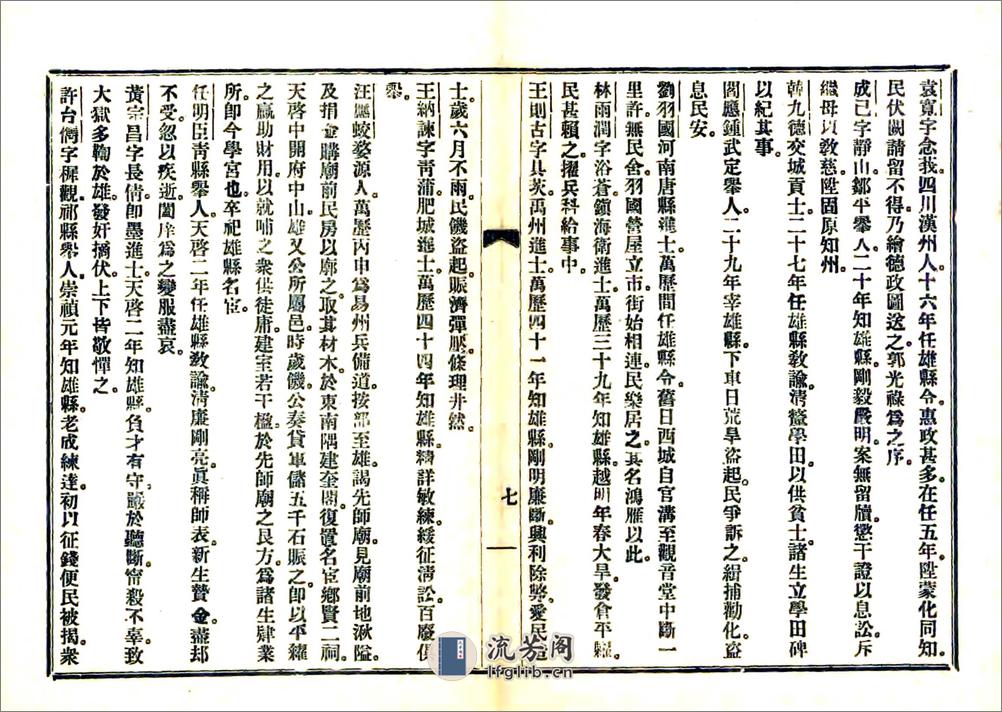 袁寬字念我四川漢州人十六年任雄縣令惠政甚多在任五年陞蒙化同知。
民伏闕請留不得乃繪德政圖送之郭光祿爲之序
成己字靜山鄒平舉人二十年知雄縣剛毅嚴明案無留牘懲干證以息訟斥
繼母以敎慈陞固原知州。
韓九德交城貢士二十七年任雄縣敎諭淸釐學田以供貧士諸生立學田碑
以紀其事。
閻應鍾武定舉人二十九年宰雄縣下車日荒旱盜起民爭訴之緝捕勸化盜
息民安。
劉羽國河南唐縣進士萬歷間任雄縣令舊日西城自官溝至觀音堂中斷一
里許無民舍羽國營屋立市街始相連民樂居之其名鴻雁以此。
林雨潤字浴蒼鎭海衛進士萬歷三十九年知雄縣越明年春大旱發倉平糶。
民甚賴之擢兵科給事中。
王則古字具茨禹州進士萬歷四十一年知雄縣剛明廉斷興利除弊愛民
七
士歲六月不雨民饑盜起賑濟彈壓條理井然
王納諫字靑蒲肥城進士萬歷四十四年知雄縣精詳敏練緩征淸訟百廢俱
舉。
汪應蛟婺源人萬歷丙申爲易州兵備道按部至雄謁先師廟見廟前地湫隘
及捐金購廟前民房以廓之取其材木於東南隅建奎閣復置名宦鄕賢二祠。
天啓中開府中山雄又公所屬邑時歲饑公奏貸軍儲五千石賑之卽以平糶
之贏助財用以就哺之衆供徒庸建室若干楹於先師廟之艮方爲諸生肄業
所卽今學宮也卒祀雄縣名宦
任明臣靑縣舉人天啓二年任雄縣敎諭淸廉剛亮眞稱師表新生贄金盡却
不受忽以疾逝闔庠爲之變服盡哀。
黃宗昌字長倩卽墨進士天啓二年知雄縣負才有守嚴於聽斷甯殺不辜致
大獄多鞫於雄發奸摘伏上下皆敬憚之
許台儁字樨觀祁縣舉人崇禎元年知雄縣老成練達初以征錢便民被揭衆
流芳閣
lfglib.cn